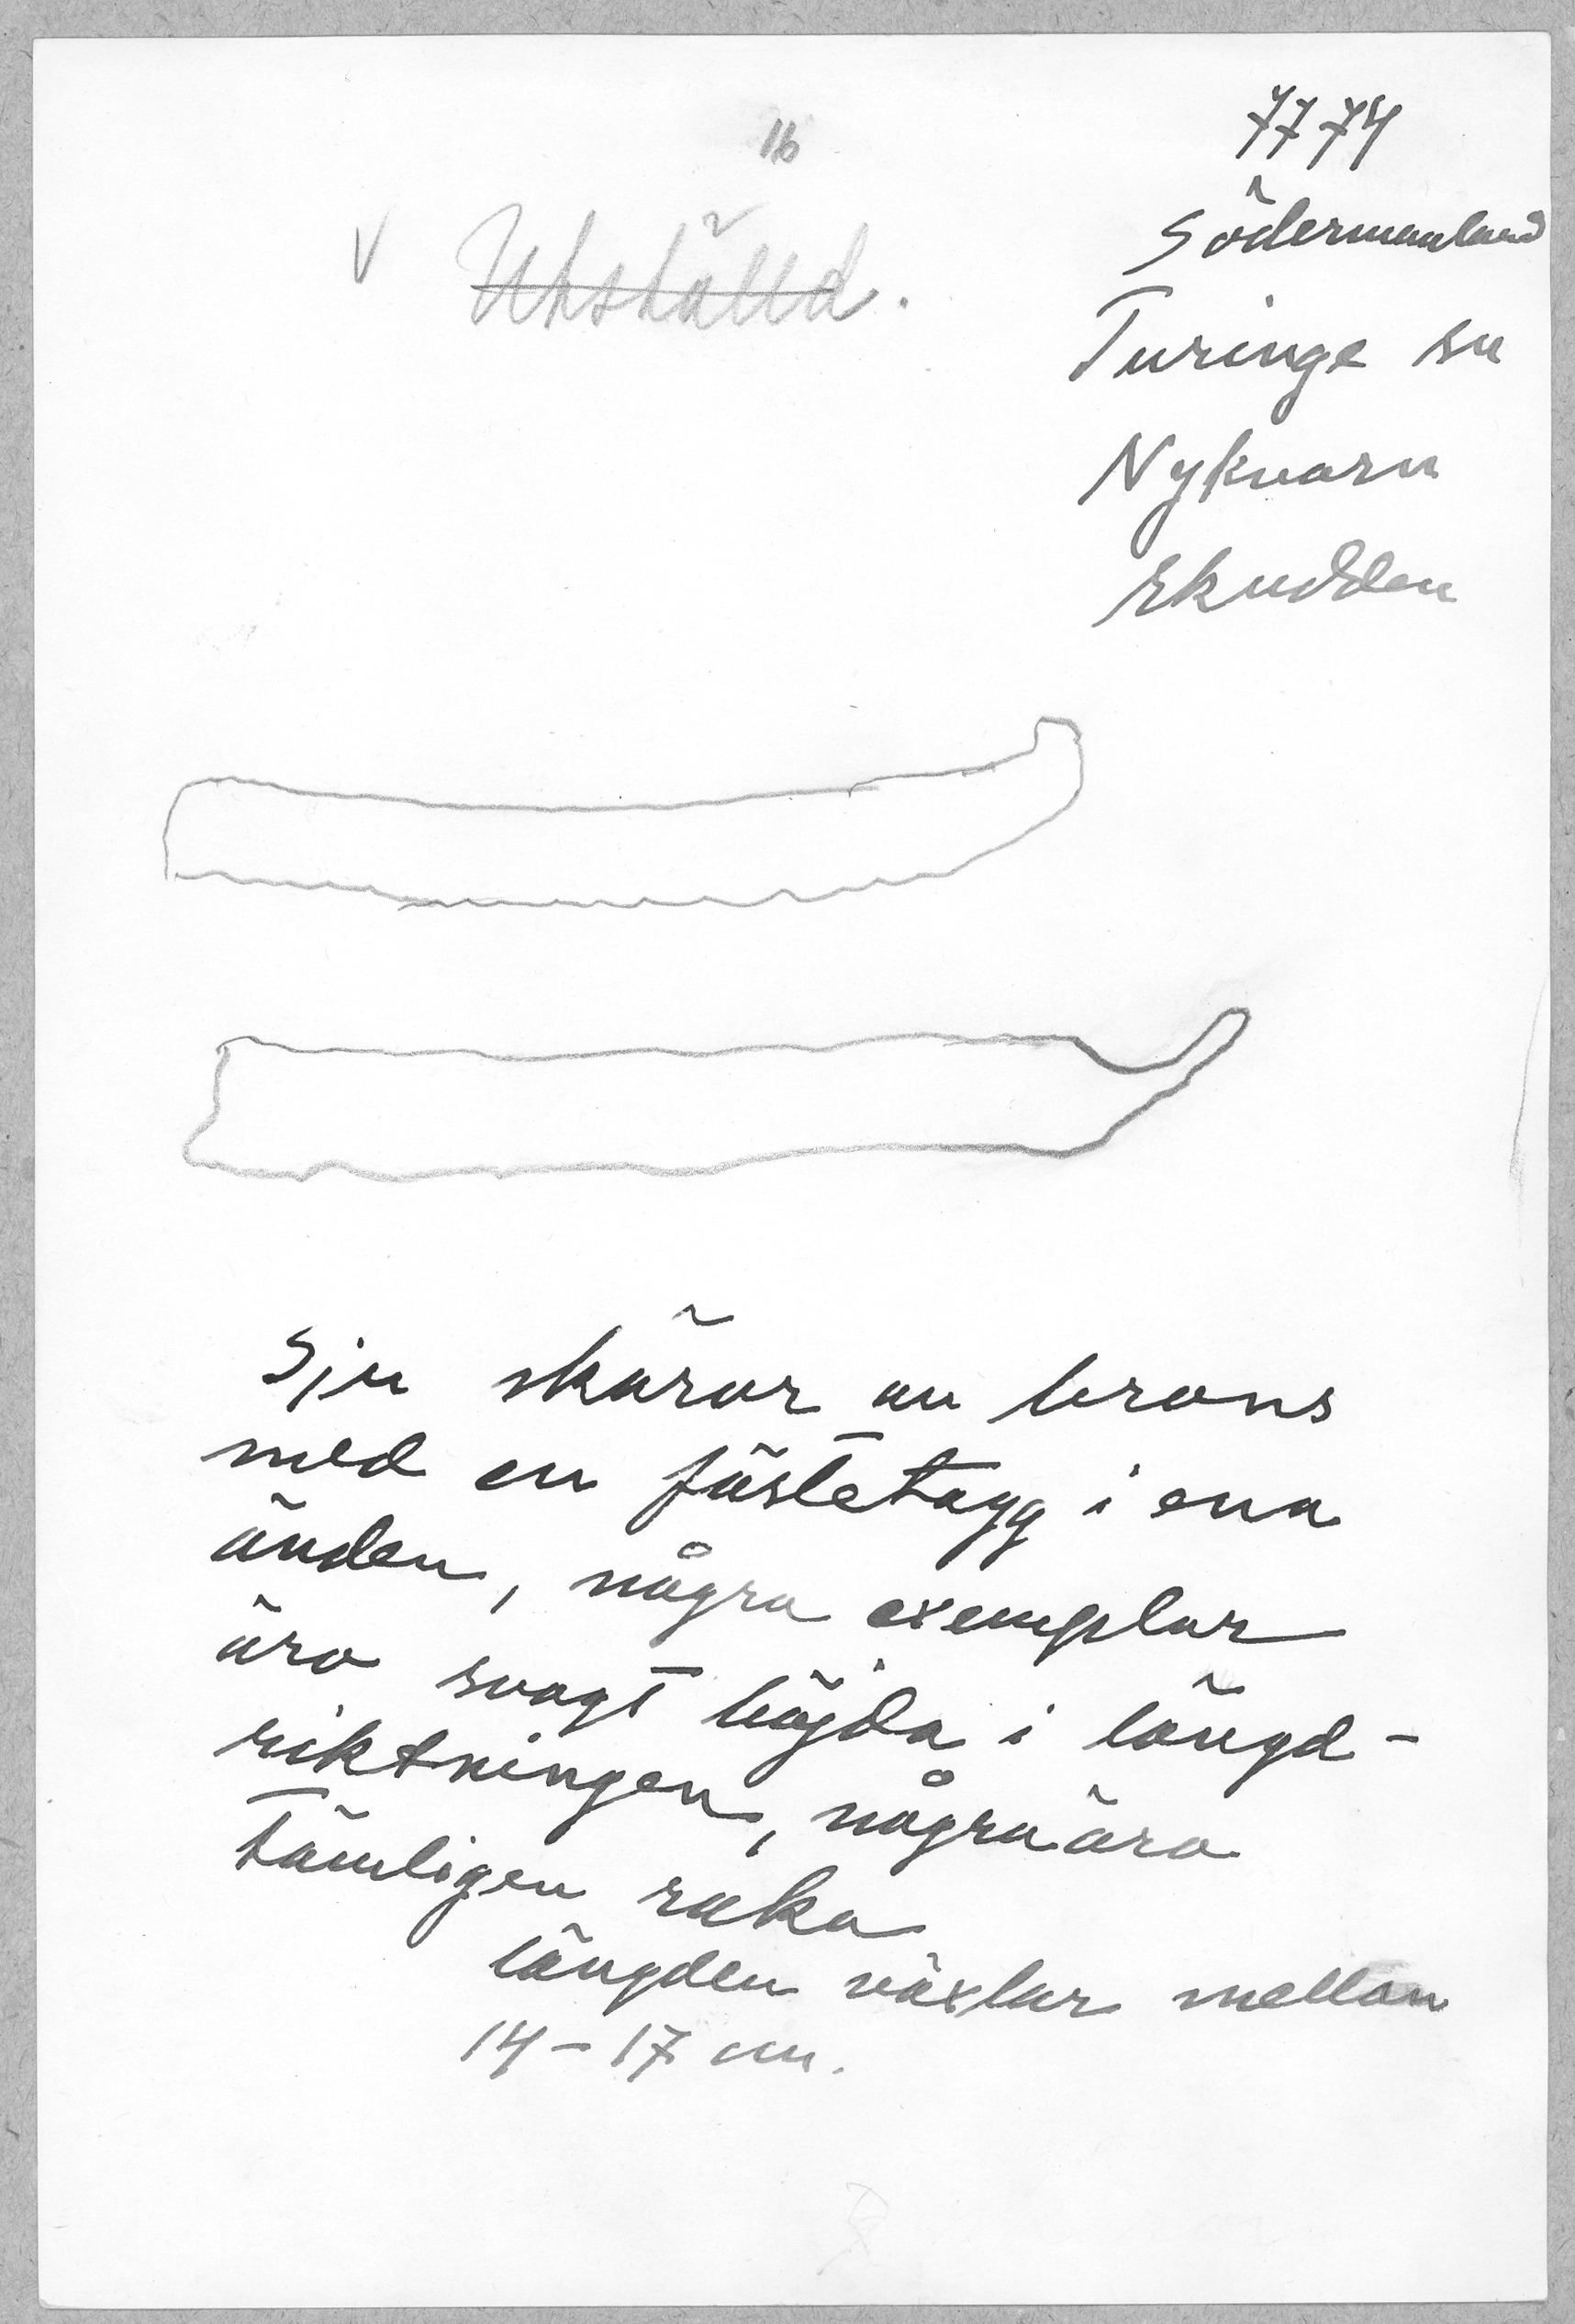 16
7774
Södermanland
V Utställd.
Turinge sn
Nykvarn
Ekudden
Sju skäror av brons
med en fästetagg i ena
änden, några exemplar
äro svagt böjda i längd-
riktningen, några äro
tämligen raka
längden växlar mellan
14-17 cm.